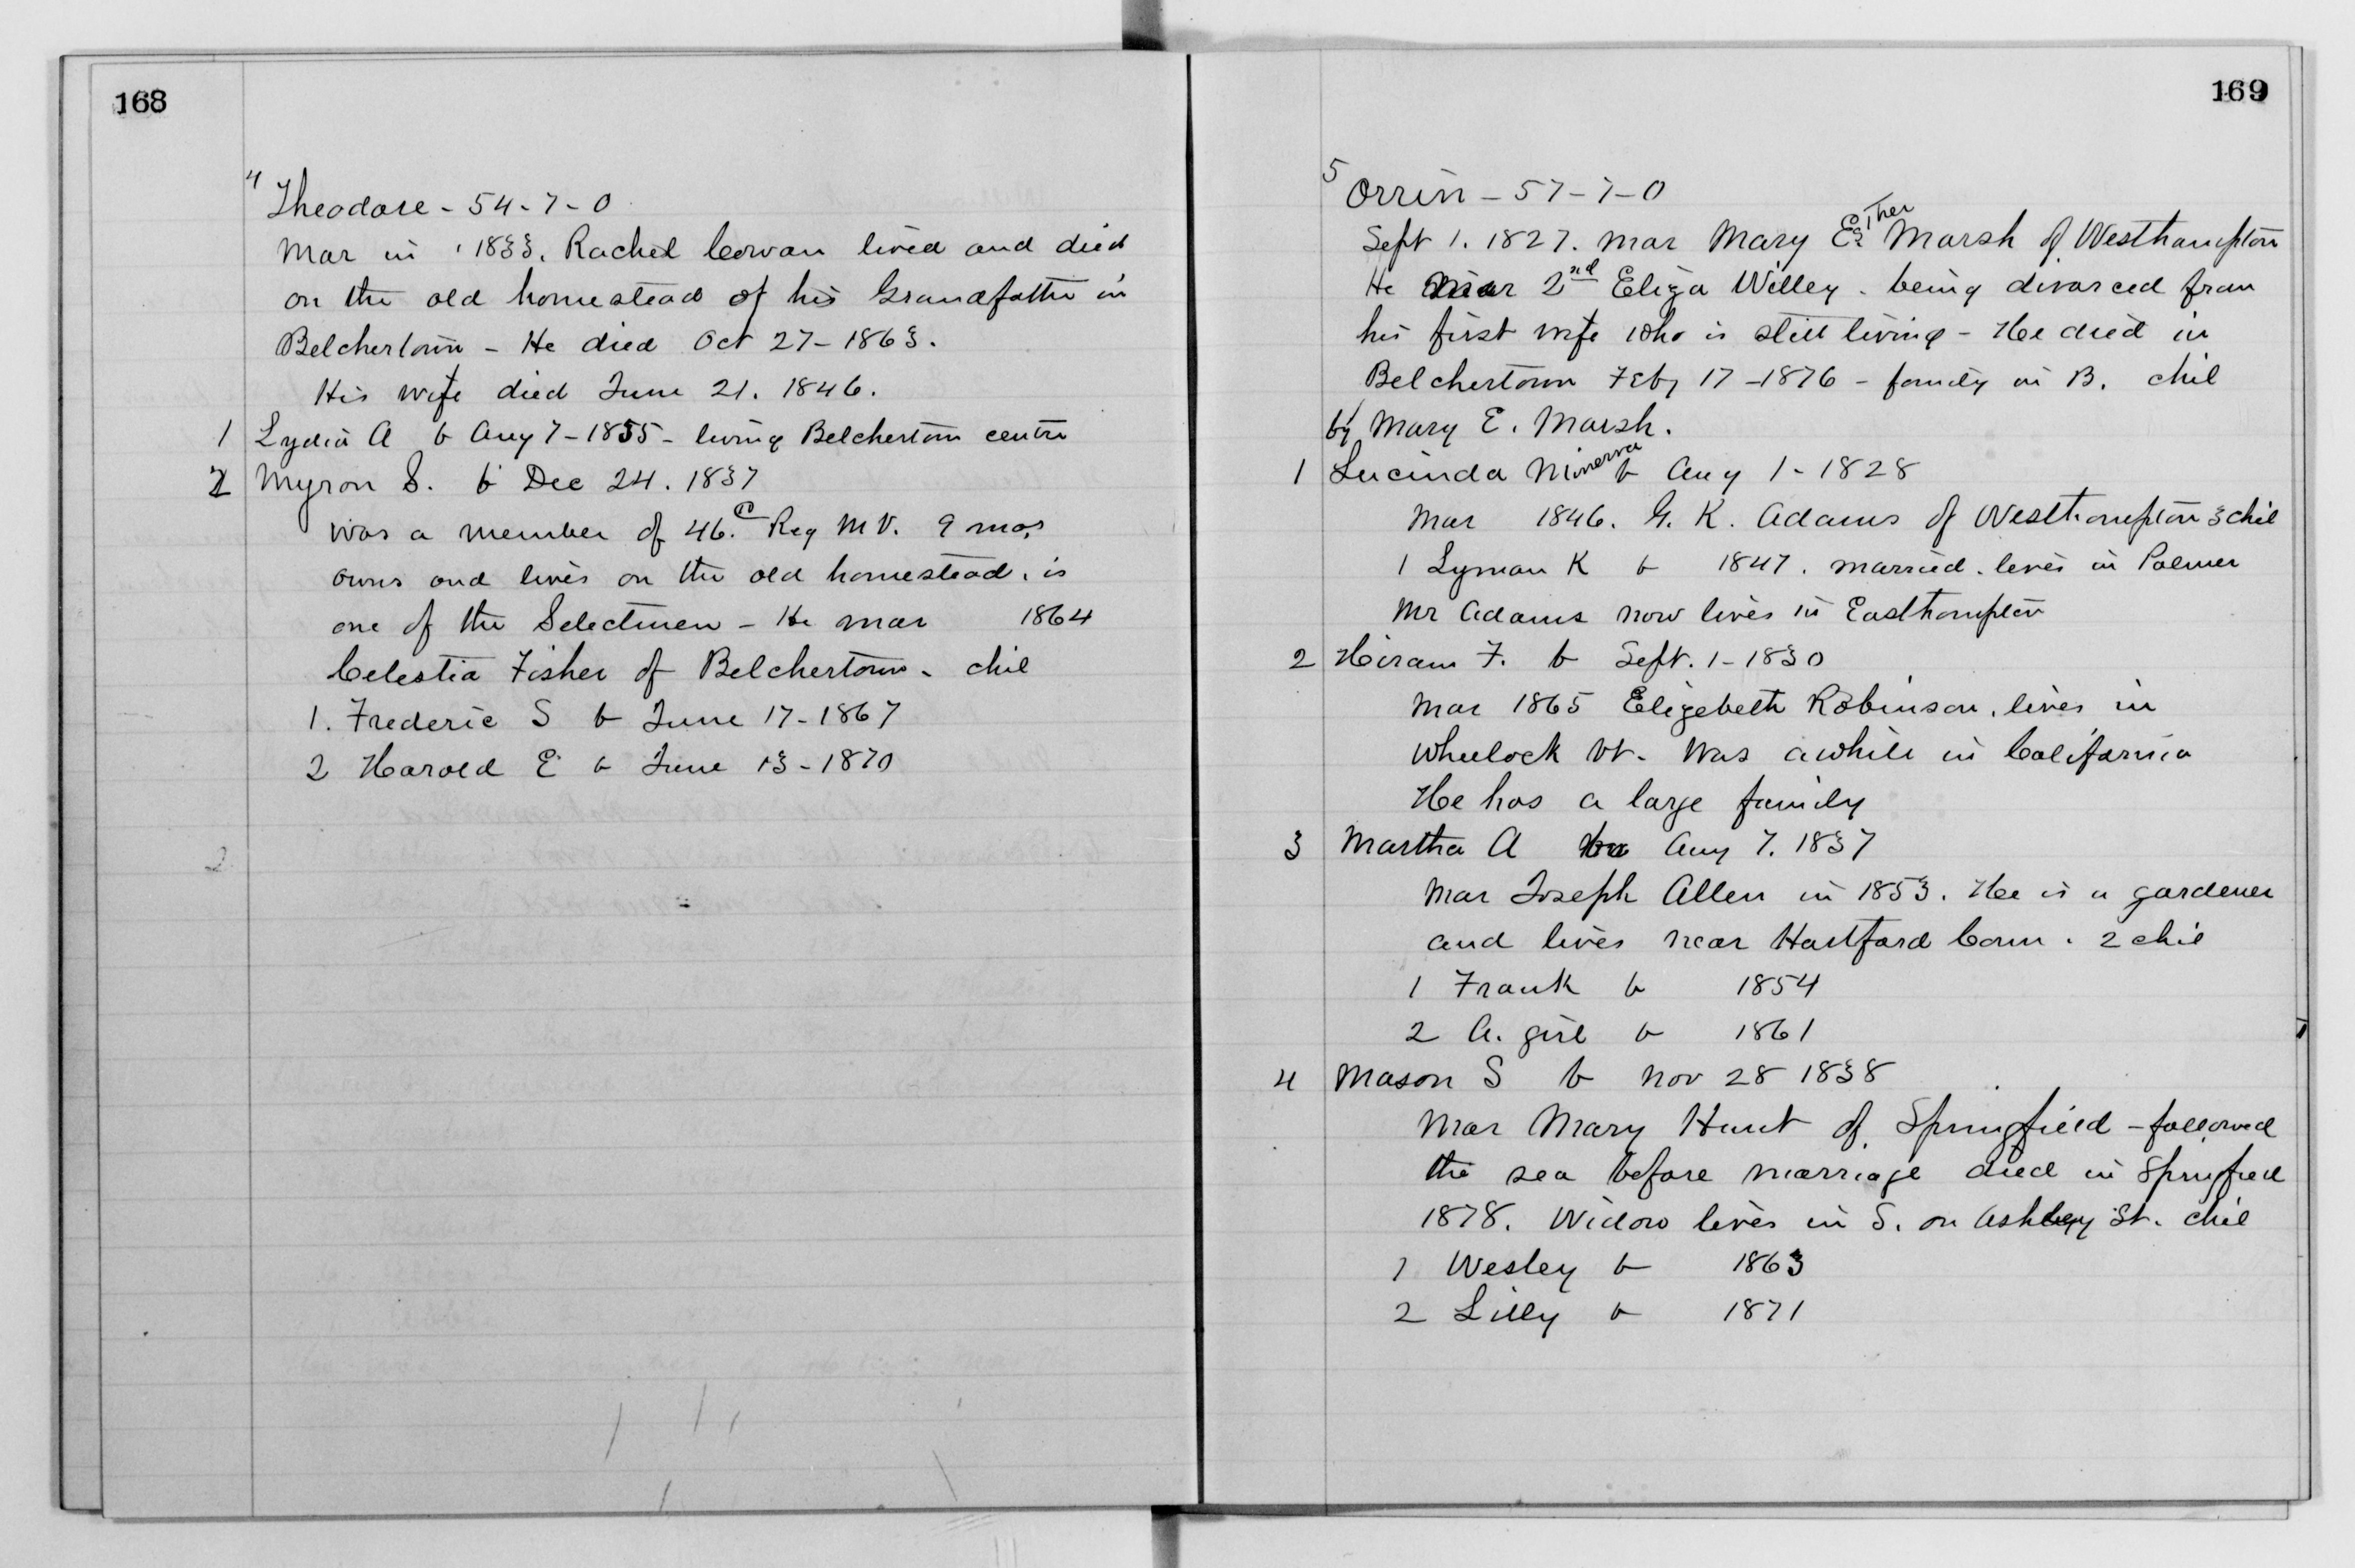 168
4
Theodore - 54-7-0
Mar in 1833. Rachel Cowan lived and died
on the old homestead of his Grandfather in
Belchertown - He died Oct 27-1863.
His wife died June 21. 1846.
1 Lydia A b Aug 7-1835 - living Belchertown centre
2 Myron S. b Dec 24. 1837
was a member of 46. Reg M V. 9 mos
owns and lives on the old homestead. is
one of the Selectmen - He mar 1864
Celestia Fisher of Belchertown - chil
1. Frederic S b June 17-1867
2 Harold E b June 13-1870
169
5
Orrin - 57-7-0
Sept 1. 1827. mar Mary Esther Marsh of Westhampton
He mar 2nd Eliza Willey. being divorced from
his first wife who is still living - He died in
Belchertown Feby 17-1876 - family in B. chil
by Mary E. Marsh.
1 Lucinda Minerva b Aug 1-1828
Mar 1846. G. K. Adams of Westhampton 3 chil
1 Lyman K b 1847. married. lives in Palmer
Mr Adams now lives in Easthampton
2 Hiram F. b Sept. 1-1830
Mar 1865 Elizebeth Robinson. lives in
Wheelock Vt. Was awhile in California
He has a large family
3 Martha A Aug 7. 1837
Mar Joseph Allen in 1853. He is a gardener
and lives near Hartford Conn. 2 chil
1 Frank b 1854
2 A. girl b 1861
4 Mason S b Nov 28 1838
Mar Mary Hunt of Springfield - followed
the sea before marriage died in Springfied
1878. Widow lives in S. on Ashley St. chil
1 Wesley b 1863
2 Lilly b 1871